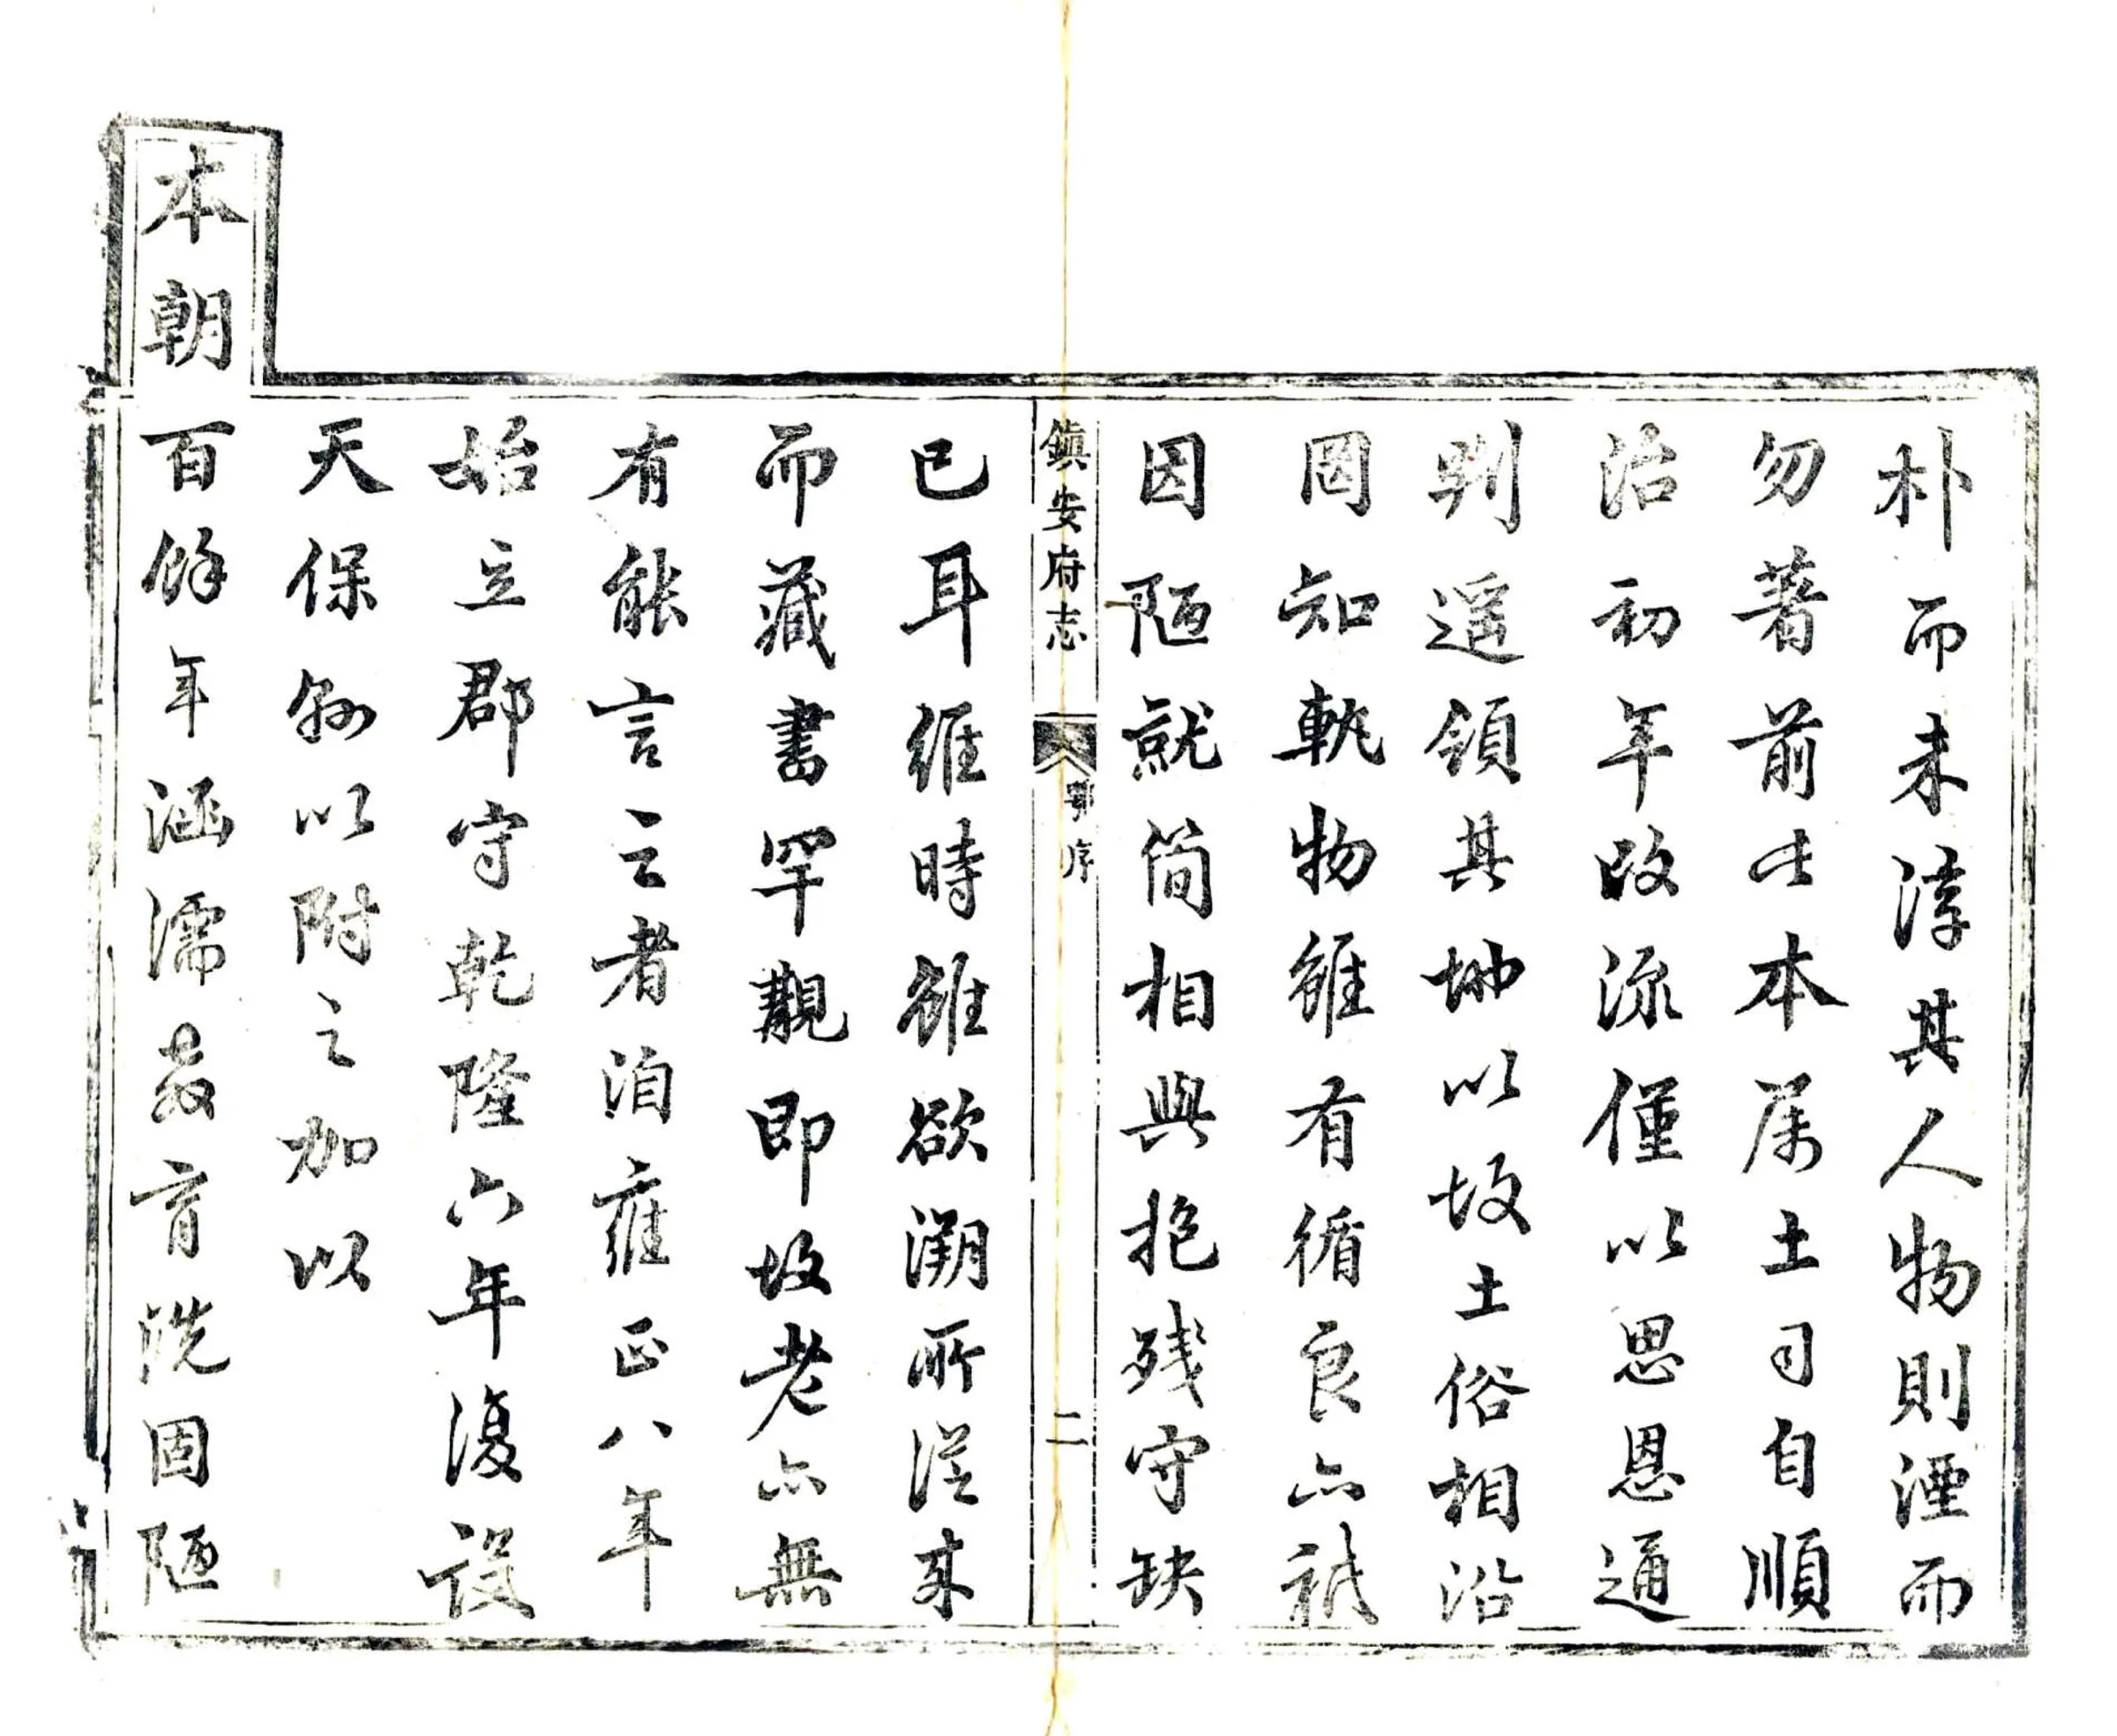 朴而未淳其人物則湮而
勿著前此本属土司自順
治初年改流僅以思恩通
判遥領其地以故土俗相沿
罔知軌物雖有循良亦祗
因陋就简相與抱残守缺
鎮安府志
鄂序
二
已耳維時雖欲溯所從来
而藏書罕覯即故老亦無
有能言之者洎雍正八年
始立郡守乾隆六年復設
天保縣以附之加以
本朝百餘年涵濡教育洗固陋